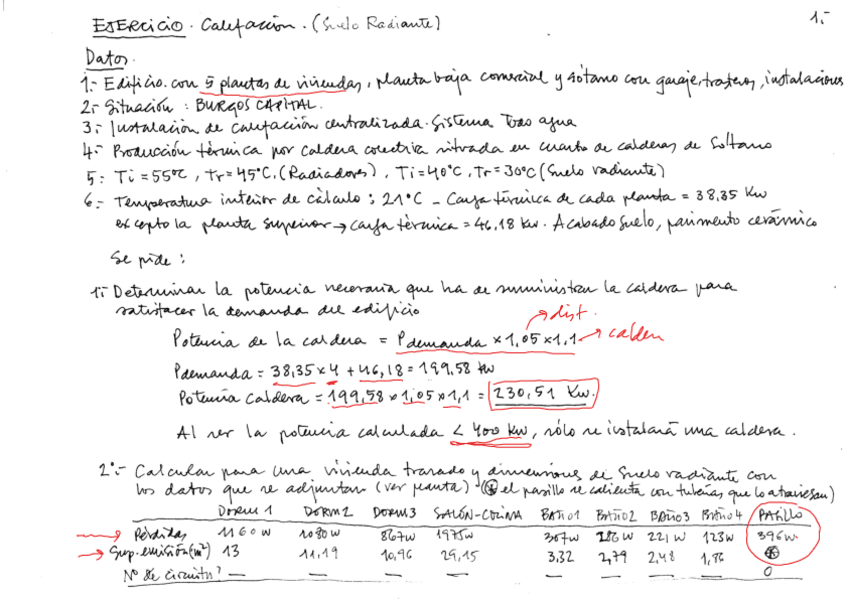 EJERCICIO. Calefacción. (Suelo Radiante)
1.-
Datos.
1.- Edificio con 5 plantas de viviendas, planta baja comercial y sótano con garaje, trasteros, instalaciones
2.- Situación : BURGOS CAPITAL.
3.- Instalación de calefacción centralizada. Sistema Todo agua
4.- Producción térmica por caldera colectiva situada en cuarto de calderas de Sótano
5.- Ti = 55ºC, Tr = 45ºC. (Radiadores), Ti = 40ºC, Tr = 30ºC (Suelo radiante)
6.- Temperatura interior de cálculo : 21ºC - Carga térmica de cada planta = 38,35 Kw
excepto la planta superior → carga térmica = 46,18 kw. Acabado suelo, pavimento cerámico
Se pide :
1.- Determinar la potencia necesaria que ha de suministrar la caldera para
satisfacer la demanda del edificio
→ dist.
Potencia de la caldera = P demanda × 1,05 × 1,1 → calden
Pdemanda = 38,35 × 4 + 46,18 = 199,58 kw
Potencia caldera = 199,58 × 1,05 × 1,1 = 230,51 Kw.
Al ser la potencia calculada < 400 kw, sólo se instalará una caldera.
2º.- Calcular para una vivienda trazado y dimensiones de suelo radiante con
los datos que se adjuntan (ver planta) (* el pasillo se calienta con tuberías que lo atraviesan)
DORM 1 DORM2 DORM3 SALÓN-COCINA BAÑO1 BAÑO2 BAÑO3 BAÑO4 PASILLO
→ Pérdidas 1160 W 1080 W 867 W 1975 W 307 W 286 W 221 W 123 W 396 W.
→ Sup. emisión (m²) 13 11,19 10,96 29,15 3,32 2,79 2,48 1,86 *
Nº de circuitos? — — — — — — — — 0